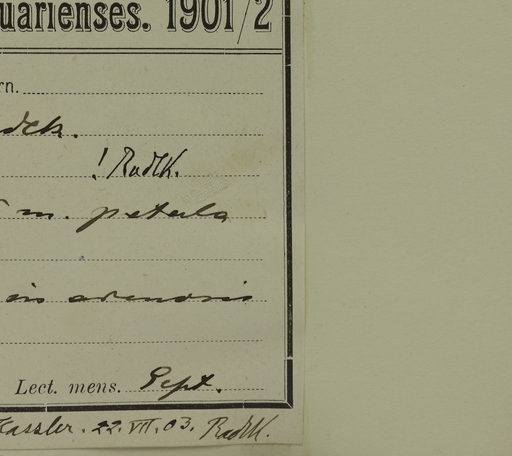 uarienses. 1901/2
rn.
dlk.
! Radlk.
m. petala
in arenosis
Lect. mens. Sept.
Hassler. 22. VII. 03. Radlk.